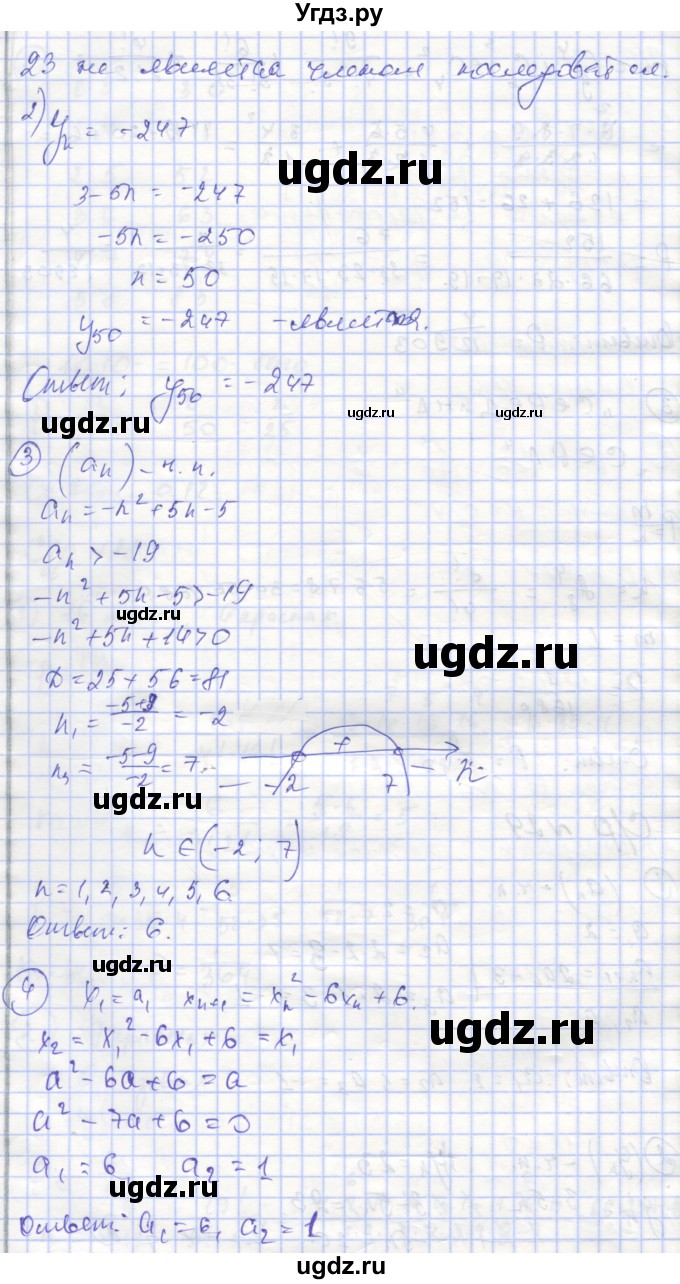 Угдз.ру
23 не является членом последоват ел.
2) yₙ = -247
ugdz.ru
3-5n = -247
-5n = -250
n = 50
y₅₀ = -247 - является.
Ответ: y₅₀ = -247
ugdz.ru
ugdz.ru
ugdz.ru
③ (aₙ) - ч.п.
aₙ = -n² + 5n - 5
aₙ > -19
-n² + 5n - 5 > -19
ugdz.ru
-n² + 5n + 14 > 0
ugdz.ru
D = 25 + 56 = 81
n₁ = (-5+9)/(-2) = -2
n₂ = (-5-9)/(-2) = 7
- -2 + 7 - n
ugdz.ru
ugdz.ru
n ∈ (-2; 7)
n = 1, 2, 3, 4, 5, 6
Ответ: 6.
ugdz.ru
④ x₁ = a, xₙ₊₁ = xₙ² - 6xₙ + 6.
x₂ = x₁² - 6x₁ + 6 = x₁
ugdz.ru
a² - 6a + 6 = a
a² - 7a + 6 = 0
ugdz.ru
a₁ = 6, a₂ = 1
ugdz.ru
Ответ: a₁ = 6, a₂ = 1
ugdz.ru